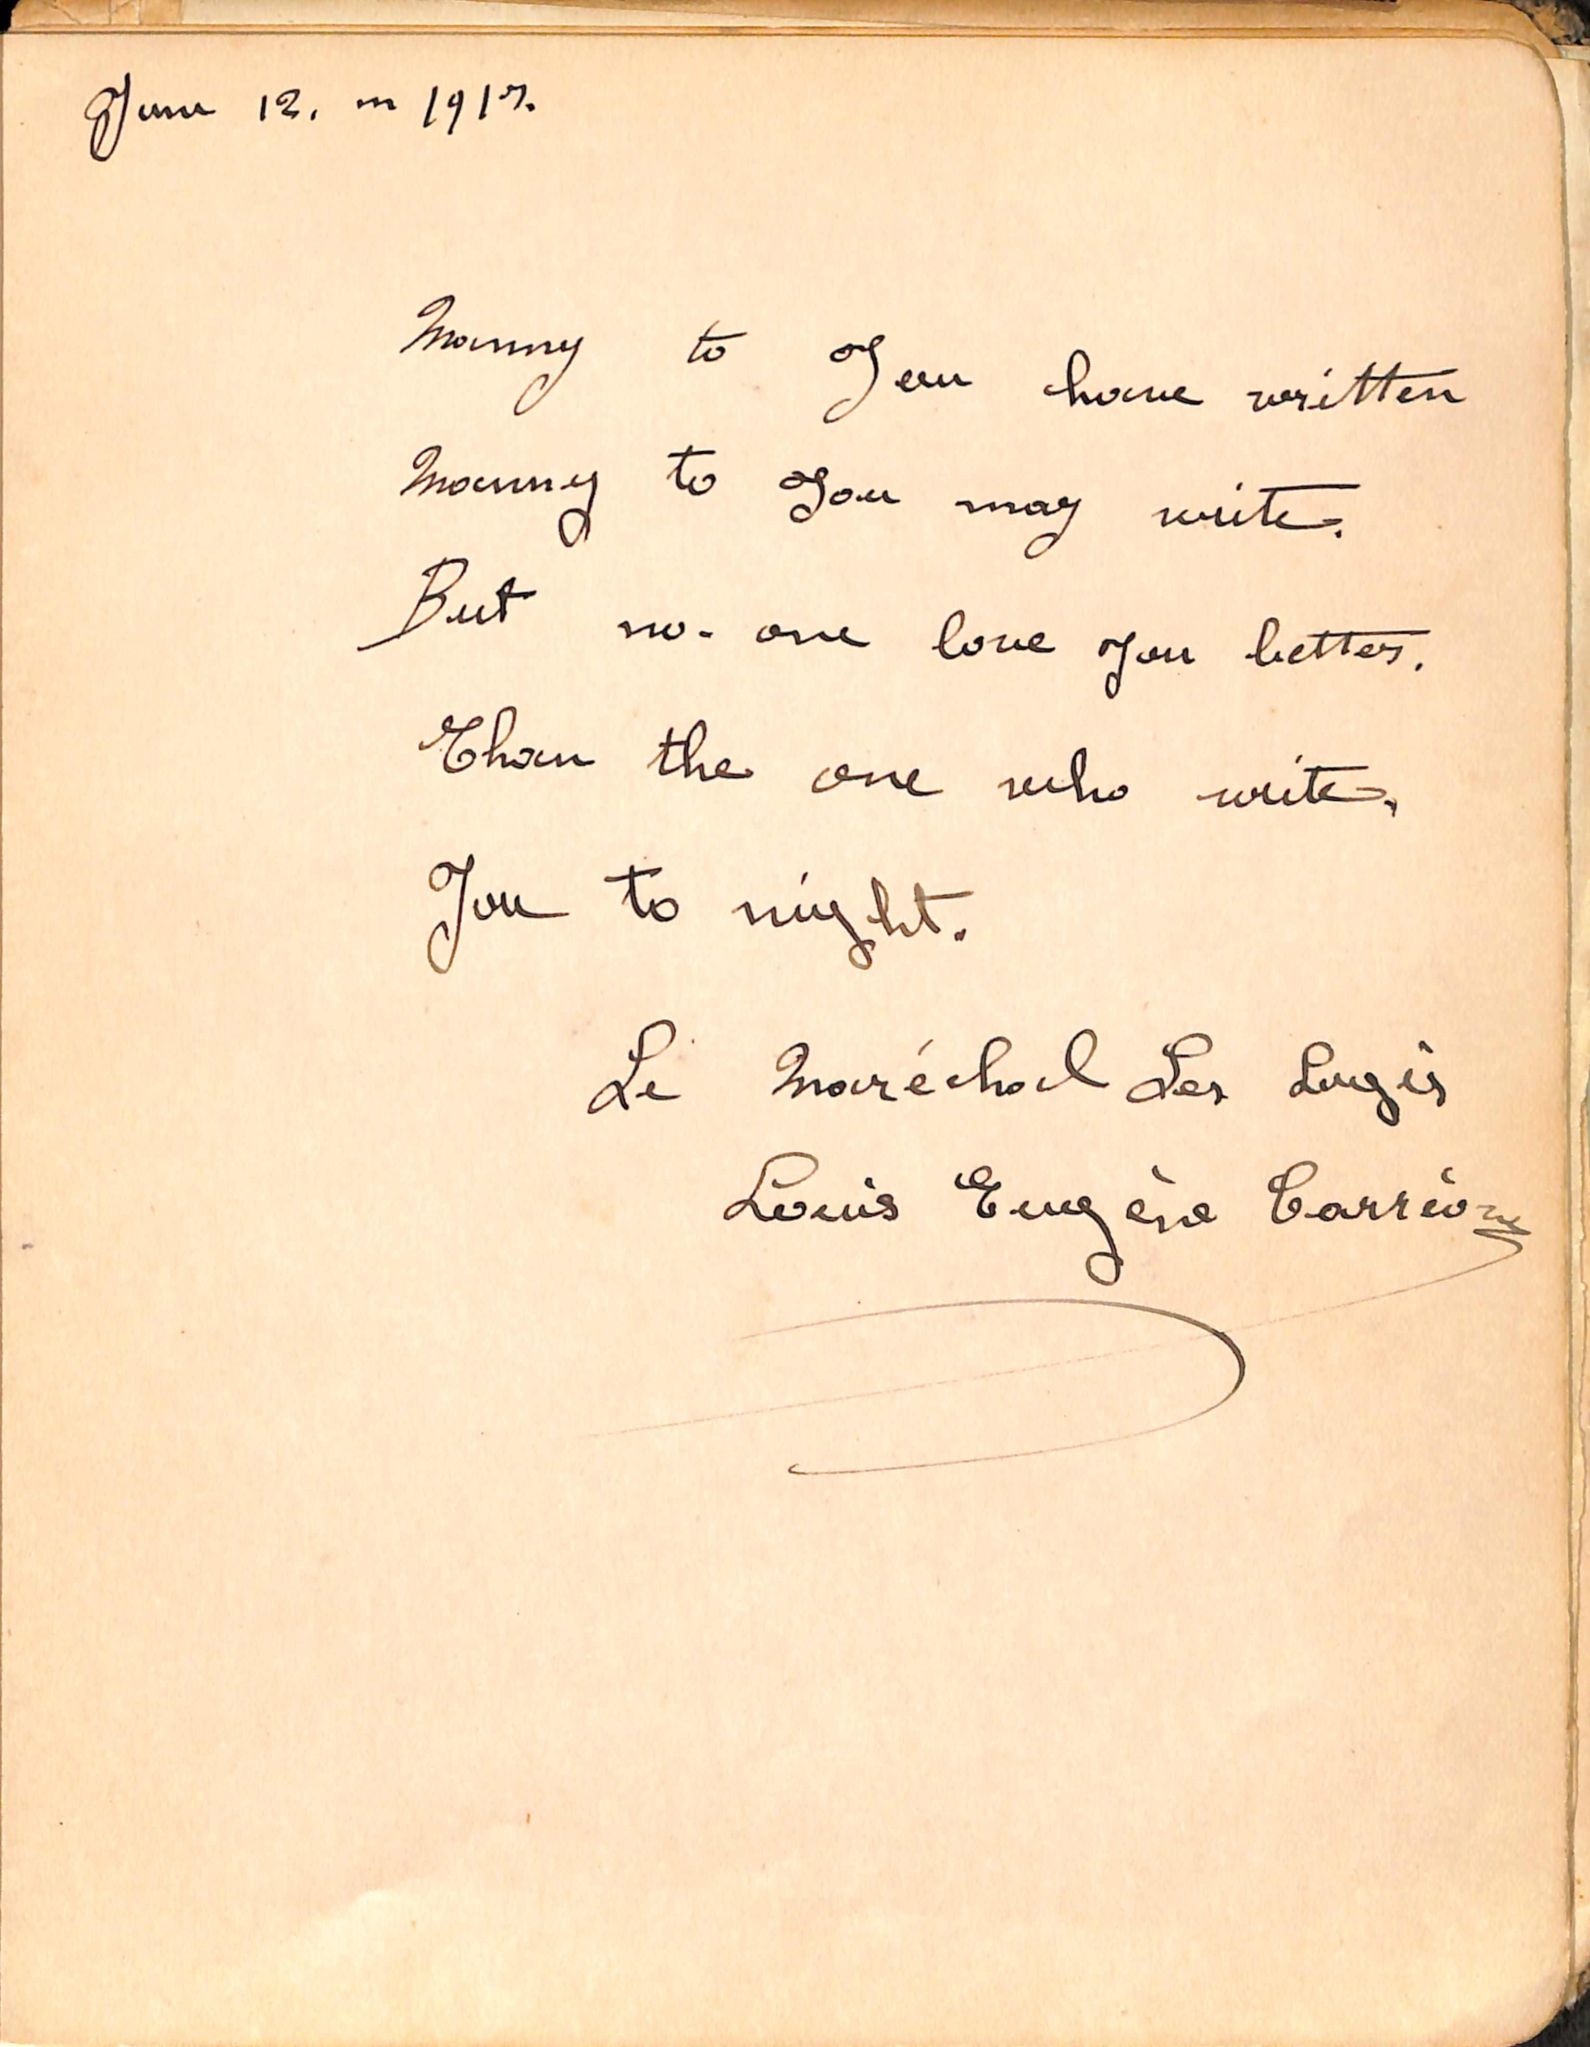 June 12. m 1917.
Manny to You have written
Manny to You may write.
But no-one love you better.
Than the one who write,
You to night.
Le Maréchal Des Logis
Louis Eugène